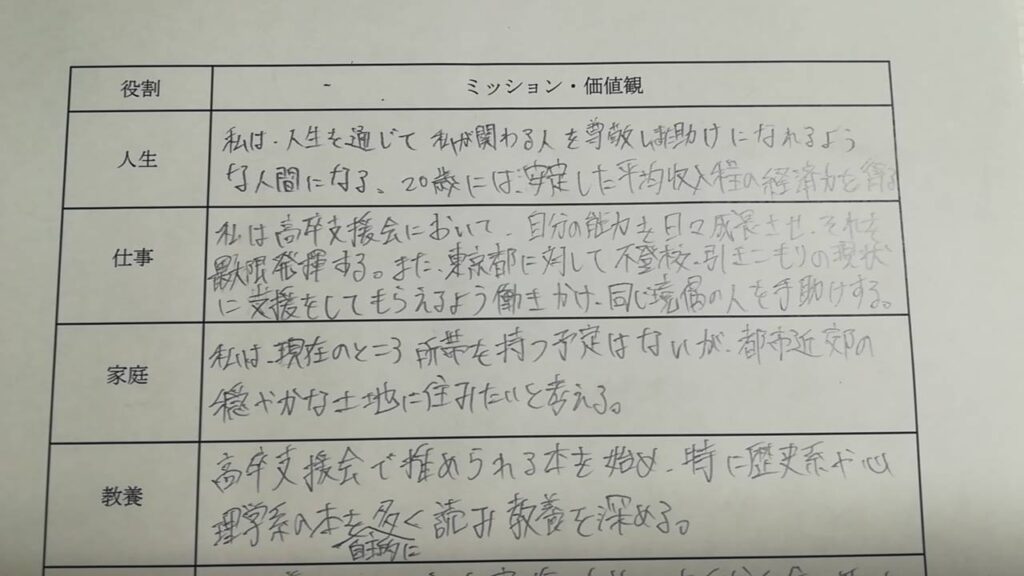 役割 ミッション・価値観
人生
私は、人生を通じて 私が関わる人を尊敬し助けになれるよう
な人間になる、20歳には安定した平均収入程の経済力を得る
仕事
私は高卒支援会において、自分の能力を日々成長させ、それを
最大限発揮する。また、東京都に対して不登校、引きこもりの現状
に支援をしてもらえるよう働きかけ、同じ境偶の人を手助けする。
家庭
私は、現在のところ所帯を持つ予定はないが、都市近郊の
穏やかな土地に住みたいと考える。
教養
高卒支援会で推められる本を始め、特に歴史系や心
理学系の本を多く読み教養を深める。
自主的に